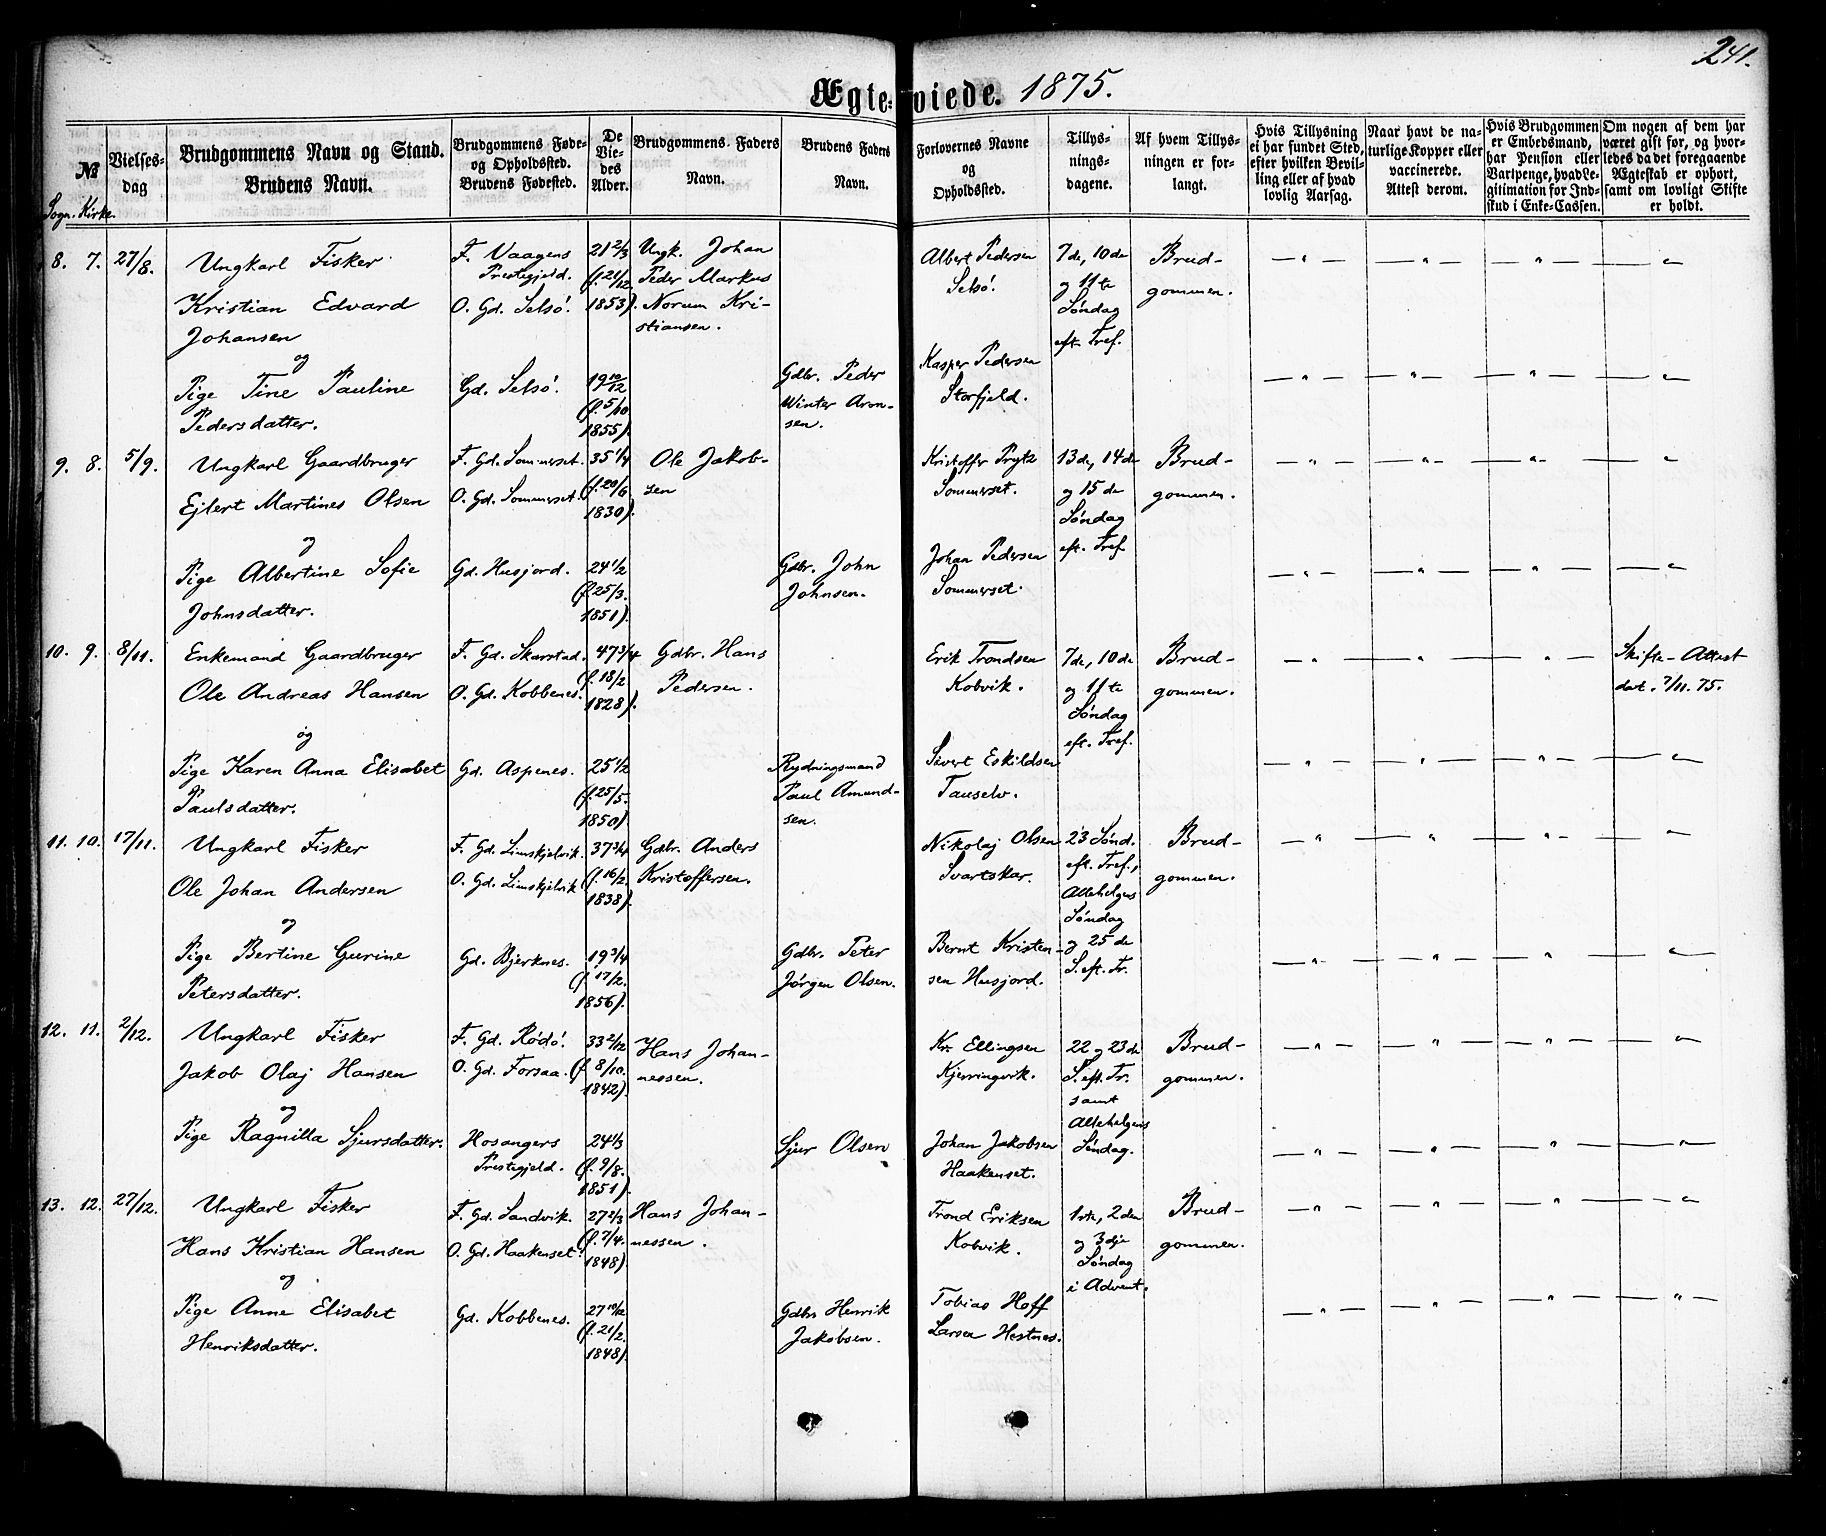 241.
Ægteviede. 1875.
№
Sogn. Kirke.
Vielses-
dag
Brudgommens Navn og Stand.
Brudens Navn.
Brudgommens Føde-
og Opholdssted.
Brudens Fødested.
De
Vie-
des
Alder.
Brudgommens Faders
Navn.
Brudens Faders
Navn.
Forlovernes Navne
og
Opholdssted.
Tillys-
nings-
dagene.
Af hvem Tillys-
ningen er for-
langt.
Hvis Tillysning
ei har fundet Sted,
efter hvilken Bevil-
ling eller af hvad
lovlig Aarsag.
Naar havt de na-
turlige Kopper eller
vaccinerede.
Attest derom.
Hvis Brudgommen
er Embedsmand,
har Pension eller
Vartpenge, hvad Le-
gitimation for Ind-
skud i Enke-Cassen.
Om nogen af dem har
været gift før, og hvor-
ledes da det foregaaende
Ægteskab er ophørt,
samt om lovligt Skifte
er holdt.
8. 7. 27/8.
Ungkarl Fisker
Kristian Edvard
Johansen
og
Pige Tine Pauline
Pedersdatter.
F. Vaagens
Prestegjeld.
O. Gd. Selsö.
Gd. Selsö.
21 2/3
(f. 21/12
1853).
19 10/12
(f. 5/10
1855).
Ungk. Johan
Peder Markus
Norum Kri-
stiansen.
Gdbr. Peder
Winter Aron-
sen.
Albert Pedersen
Selsö.
Kasper Pedersen
Storfjeld.
7de, 10de
og 11te
Söndag
eft. Tref.
Brud-
gommen.
9. 8. 5/9.
Ungkarl Gaardbruger
Ejlert Martines Olsen
og
Pige Albertine Sofie
Johnsdatter.
F. Gd. Sommerset.
O. Gd. Sommerset.
Gd. Husjord.
35 1/4
(f. 20/6
1830).
24 1/2
(f. 25/3.
1851).
Ole Jakob-
sen
Gdbr. John
Johnsen.
Kristoffer Prytz
Sommerset.
Johan Pedersen
Sommerset.
13de, 14de
og 15de
Söndag
eft. Tref.
Brud-
gommen.
10. 9. 8/11.
Enkemand Gaardbruger
Ole Andreas Hansen
og
Pige Karen Anna Elisabet
Paulsdatter.
F. Gd. Skarstad.
O. Gd. Kobbenes.
Gd. Aspenes.
47 3/4
(f. 18/2
1828).
25 1/2
(f. 25/5.
1850).
Gdbr. Hans
Pedersen.
Rydningsmand
Paul Amund-
sen.
Erik Trondsen
Kobvik.
Sivert Eskildsen
Tauselv.
7de, 10de
og 11te
Söndag
eft. Tref.
Brud-
gommen.
Skifte-Attest
dat. 7/11. 75.
11. 10. 17/11.
Ungkarl Fisker
Ole Johan Andersen
og
Pige Bertine Gurine
Petersdatter.
F. Gd. Limskjelvik.
O. Gd. Limskjelvik
Gd. Bjerknes.
37 3/4
(f. 16/2.
1838).
19 3/4
(f. 17/2.
1856).
Gdbr. Anders
Kristoffersen.
Gdbr. Peter
Jörgen Olsen.
Nikolaj Olsen
Svartskar.
Bernt Kristen-
sen Husjord.
23 Sönd.
eft. Tref.,
Allehelgens
Söndag
og 25de
S. eft. Tr.
Brud-
gommen.
12. 11. 2/12.
Ungkarl Fisker
Jakob Olaj Hansen
og
Pige Ragnilla Sjursdatter.
F. Gd. Rödö.
O. Gd. Forsaa.
Hosangers
Prestegjeld.
33 2/12
(f. 8/10.
1842).
24 1/3
(f. 9/8.
1851).
Hans Johan-
nessen.
Sjur Olsen
Kr. Ellingsen
Kjerringvik.
Johan Jakobsen
Haakenset.
22 og 23de
S. eft. Tr.
samt
Allehelgens
Söndag.
Brud-
gommen.
13. 12. 27/12.
Ungkarl Fisker
Hans Kristian Hansen
og
Pige Anne Elisabet
Henriksdatter.
F. Gd. Sandvik.
O. Gd. Haakenset.
Gd. Kobbenes.
27 2/3
(f. 7/4.
1848)
27 10/12
(f. 21/2.
1848).
Hans Johan-
nessen.
Gdbr. Henrik
Jakobsen.
Trond Eriksen
Kobvik.
Tobias Hoff
Larsen Hestnes.
1ste, 2den
og 3dje
Söndag
i Advent.
Brud-
gommen.